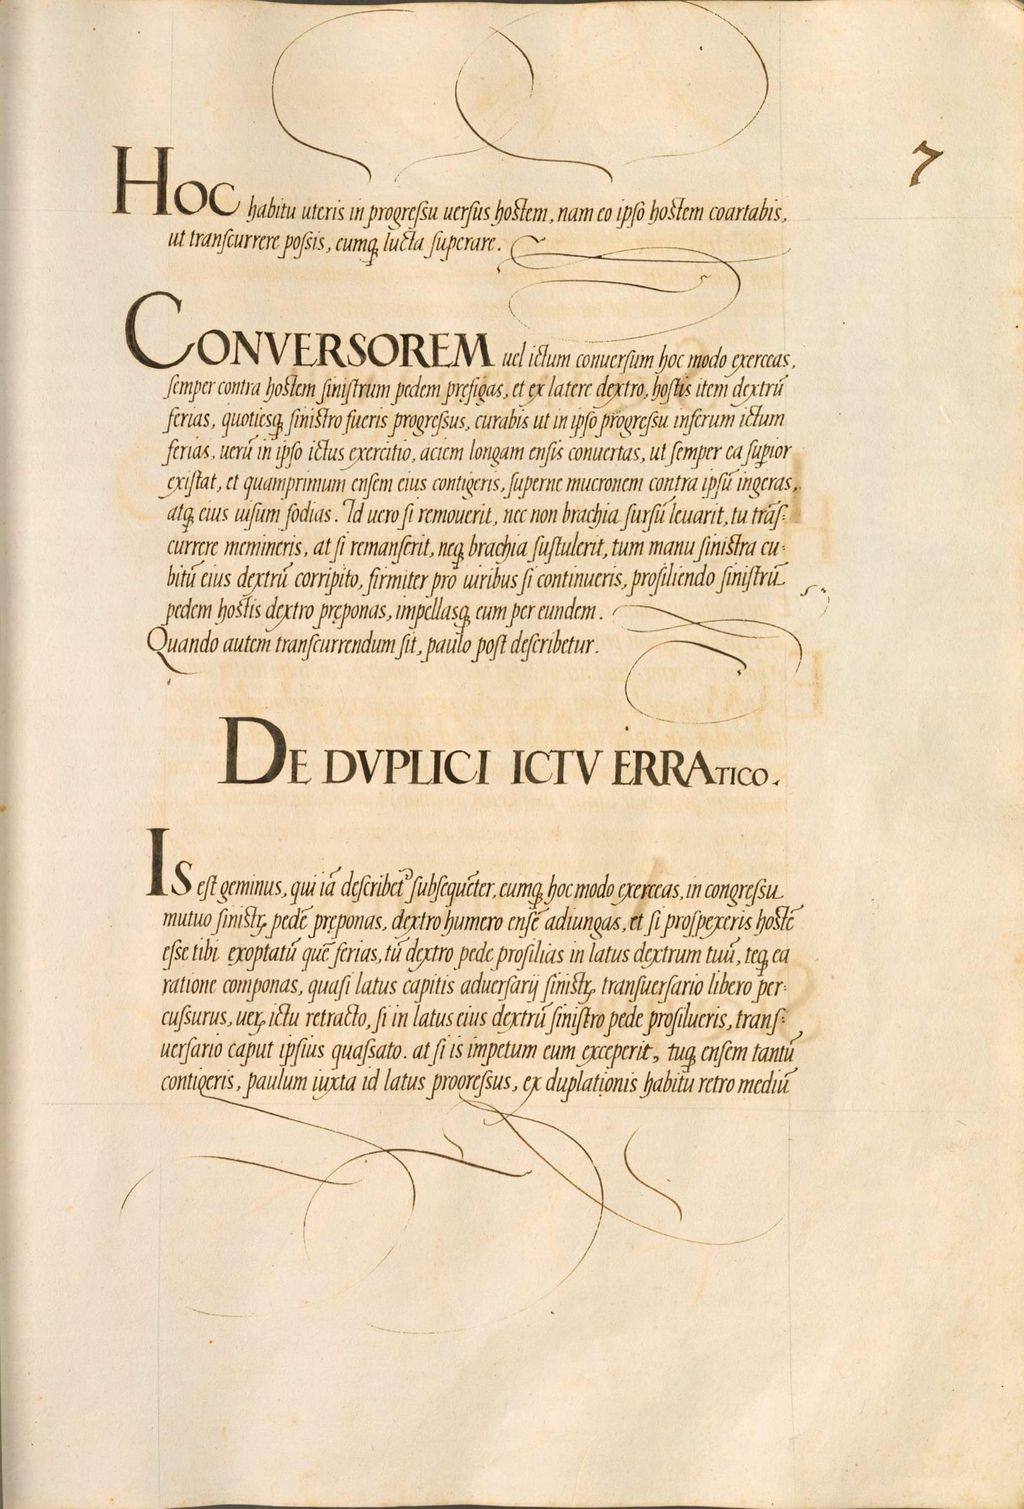 7
Hoc habitu uteris in progressu uersus hostem, nam eo ipso hostem coartabis,
ut transcurrere possis, eumq; lucta superare.
CONVERSOREM uel ictum conuersum hoc modo exerceas,
semper contra hostem sinistrum pedem pręfigas, et ex latere dextro, hostis item dextrū
ferias, quotiesq; sinistro fueris progressus, curabis ut in ipso progressu inferum ictum
ferias, uerū in ipso ictus exercitio, aciem longam ensis conuertas, ut semper ea supior
existat, et quamprimum ensem eius contigeris, superne mucronem contra ipsū ingeras,
atq; eius uisum fodias. Id uero si remouerit, nec non brachia sursū leuarit, tu trās:
currere memineris, at si remanserit, neq; brachia sustulerit, tum manu sinistra cu:
bitū eius dextrū corripito, firmiter pro uiribus si continueris, prosiliendo sinistrū
pedem hostis dextro pręponas, impellasq; eum per eundem.
Quando autem transcurrendum sit, paulo post describetur.
DE DVPLICI ICTV ERRATICO.
Is est geminus, qui iā describet subsequēter, eumq; hoc modo exerceas, in congressu
mutuo sinistꝝ pedē pręponas, dextro humero ensē adiungas, et si prospexeris hostē
esse tibi exoptatū quē ferias, tū dextro pede prosilias in latus dextrum tuū, teq; ea
ratione componas, quasi latus capitis aduersarij sinistꝝ transuersario libero per:
cussurus, ueꝝ ictu retracto, si in latus eius dextrū sinistro pede prosilueris, trans:
uersario caput ipsius quassato. at si is impetum eum exceperit, tuq; ensem tantū
contigeris, paulum iuxta id latus progressus, ex duplationis habitu retro mediū